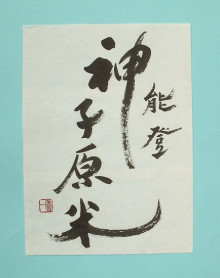 能登
神子原米